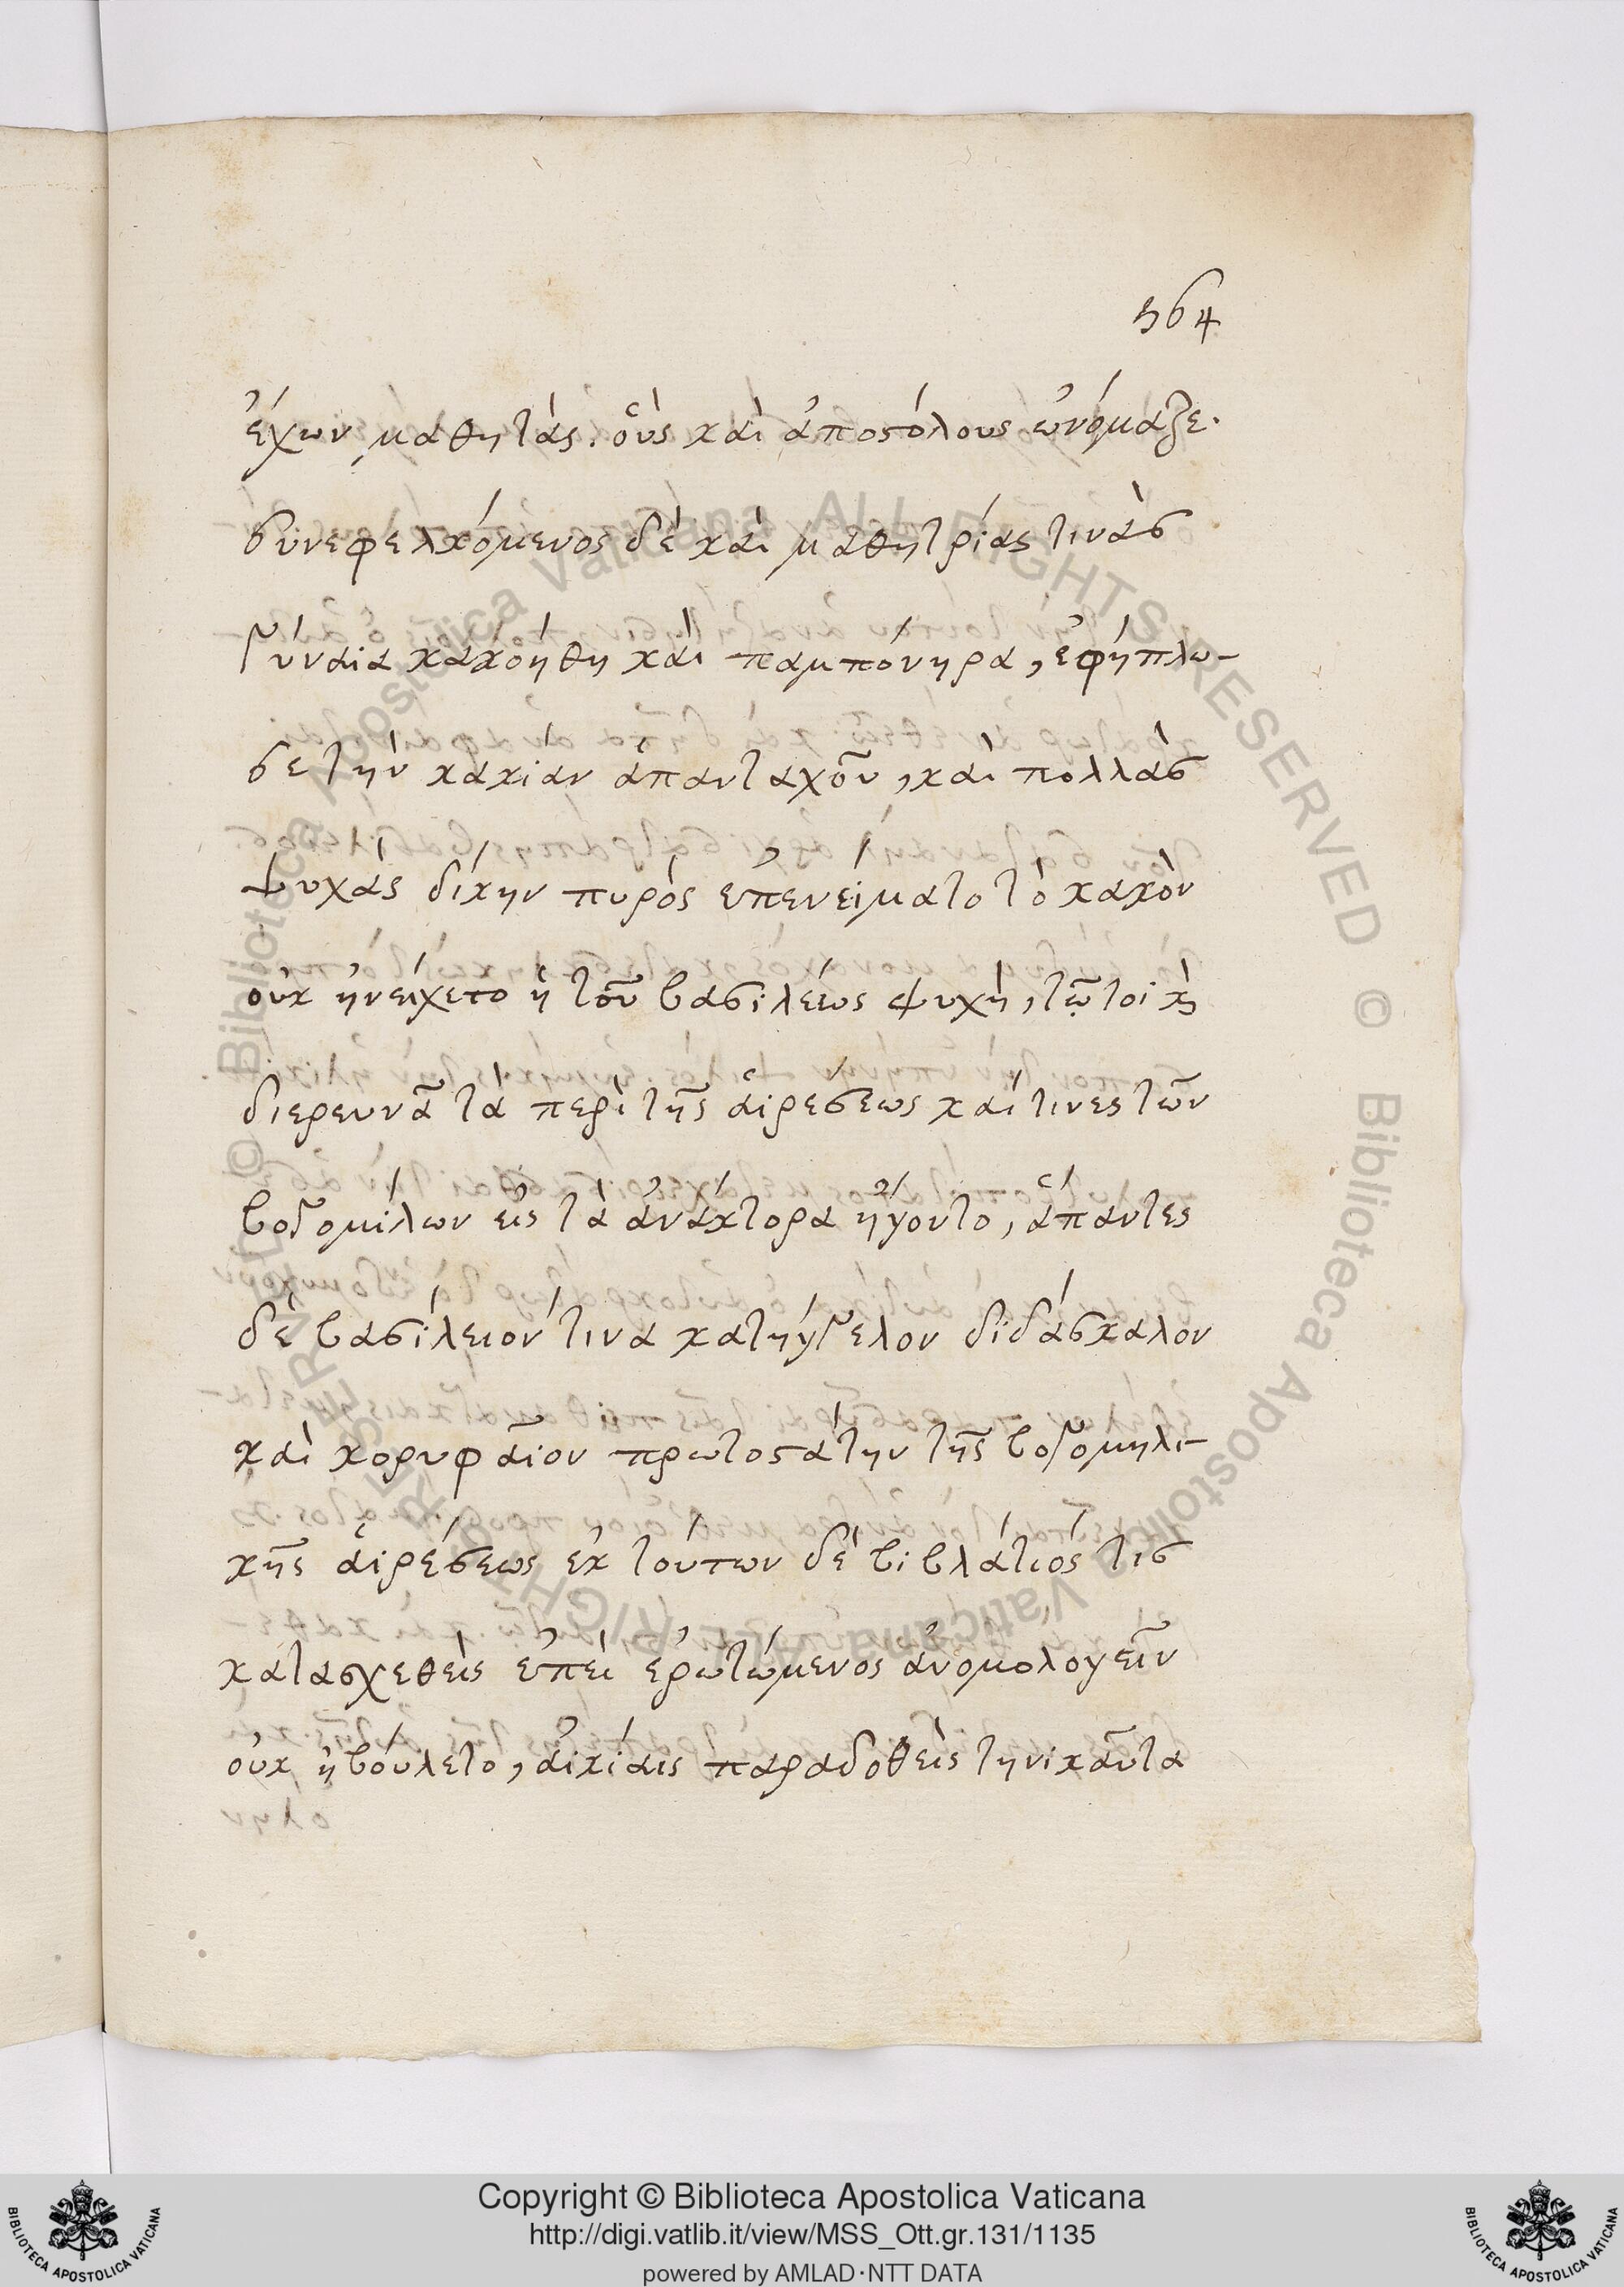 564
ἔχων μαθητὰς. οὓς καὶ ἀποστόλους ὠνόμαζε.
συνεφελκόμενος δὲ καὶ μαθητρίας τινὰς
γύναια κακόηθη καὶ παμπόνηρα, ἐφήπλω-
σε τὴν κακίαν ἁπανταχοῦ, καὶ πολλὰς
ψυχὰς δίκην πυρὸς ἐπενείματο τὸ κακὸν
οὐκ ἠνείχετο ἡ τοῦ βασιλέως ψυχὴ, τῷ τοι καὶ
διερευνᾶ τὰ περὶ τῆς αἱρεσεως καὶ τινες τῶν
βογομίλων εἰς τὰ ἀνάκτορα ἤγοντο, ἅπαντες
δὲ βασίλειον τινα κατήγγελον διδάσκαλον
καὶ κορυφαῖον πρωτοστάτην τῆς βογομηλι-
κῆς αἱρέσεως ἐκ τούτων δὲ βιβλάτιος τις
κατασχεθεὶς ἐπεὶ ἐρωτώμενος ἀνομολογεῖν
οὐκ ἠβούλετο, αἰκίαις παραδοθεὶς τηνικαῦτα
Copyright © Biblioteca Apostolica Vaticana
http://digi.vatlib.it/view/MSS_Ott.gr.131/1135
powered by AMLAD·NTT DATA